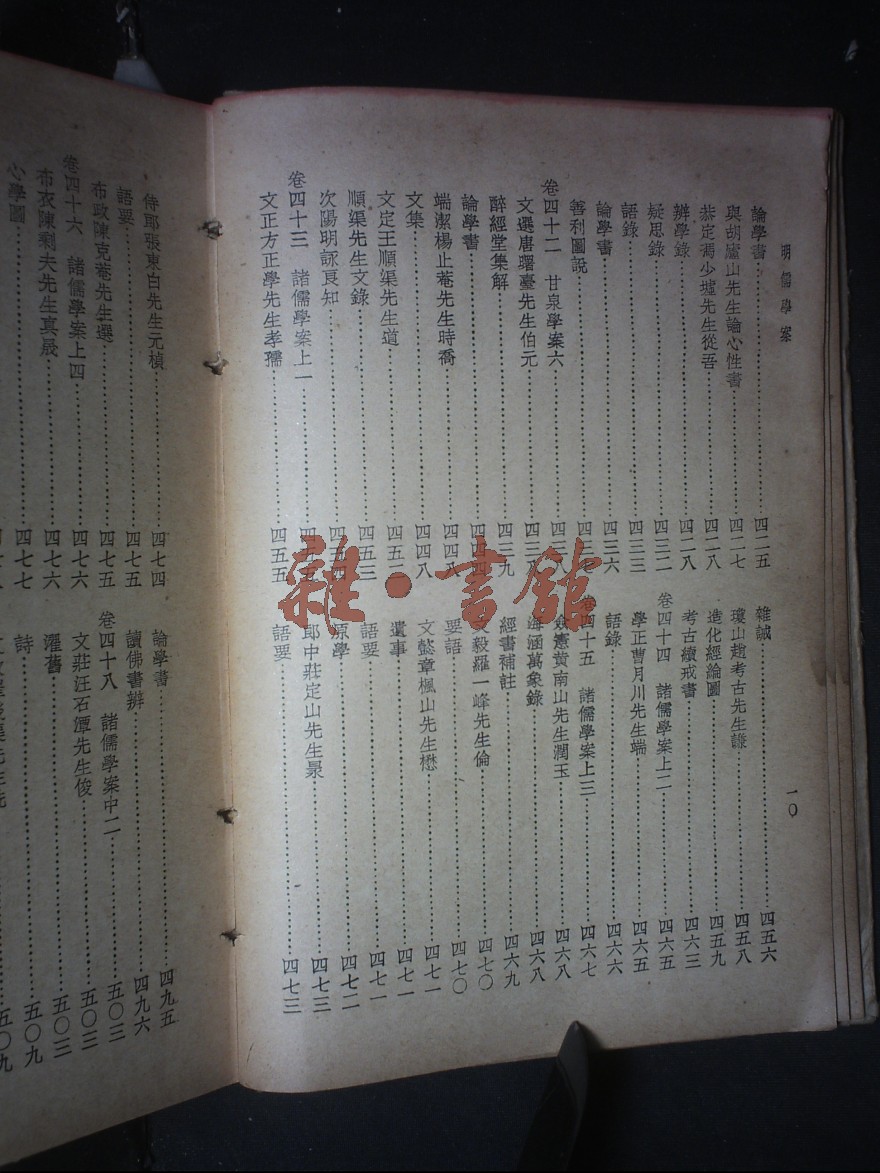 明儒學案
一〇
論學書……四二五
與胡廬山先生論心性書……四二七
恭定馮少墟先生從吾……四二八
辨學錄……四二八
疑思錄……四三二
語錄……四三三
論學書……四三六
善利圖說……四三七
卷四十二 甘泉學案六……四三八
文選唐曙臺先生伯元……四三八
醉經堂集解……四三九
論學書……四四四
端潔楊止菴先生時喬……四四八
文集……四四八
文定王順渠先生道……四五二
順渠先生文錄……四五三
次陽明詠良知……四五四
卷四十三 諸儒學案上一……四五五
文正方正學先生孝孺……四五五
雜誡……四五六
瓊山趙考古先生謙……四五八
造化經綸圖……四五九
考古續戒書……四六三
卷四十四 諸儒學案上二……四六五
學正曹月川先生端……四六五
語錄……四六六
卷四十五 諸儒學案上三……四六七
僉憲黃南山先生潤玉……四六八
海涵萬象錄……四六八
經書補註……四六九
文毅羅一峰先生倫……四七〇
要語……四七〇
文懿章楓山先生懋……四七一
遺事……四七一
語要……四七一
原學……四七二
郎中莊定山先生㫤……四七三
語要……四七三
侍郎張東白先生元禎……四七四
語要……四七五
布政陳克菴先生選……四七五
卷四十六 諸儒學案上四……四七六
布衣陳剩夫先生真晟……四七六
心學圖……四七七
論學書……四九五
讀佛書辨……四九六
卷四十八 諸儒學案中二……五〇三
文莊汪石潭先生俊……五〇三
濯舊……五〇三
詩……五〇九
五〇九
雜·書館